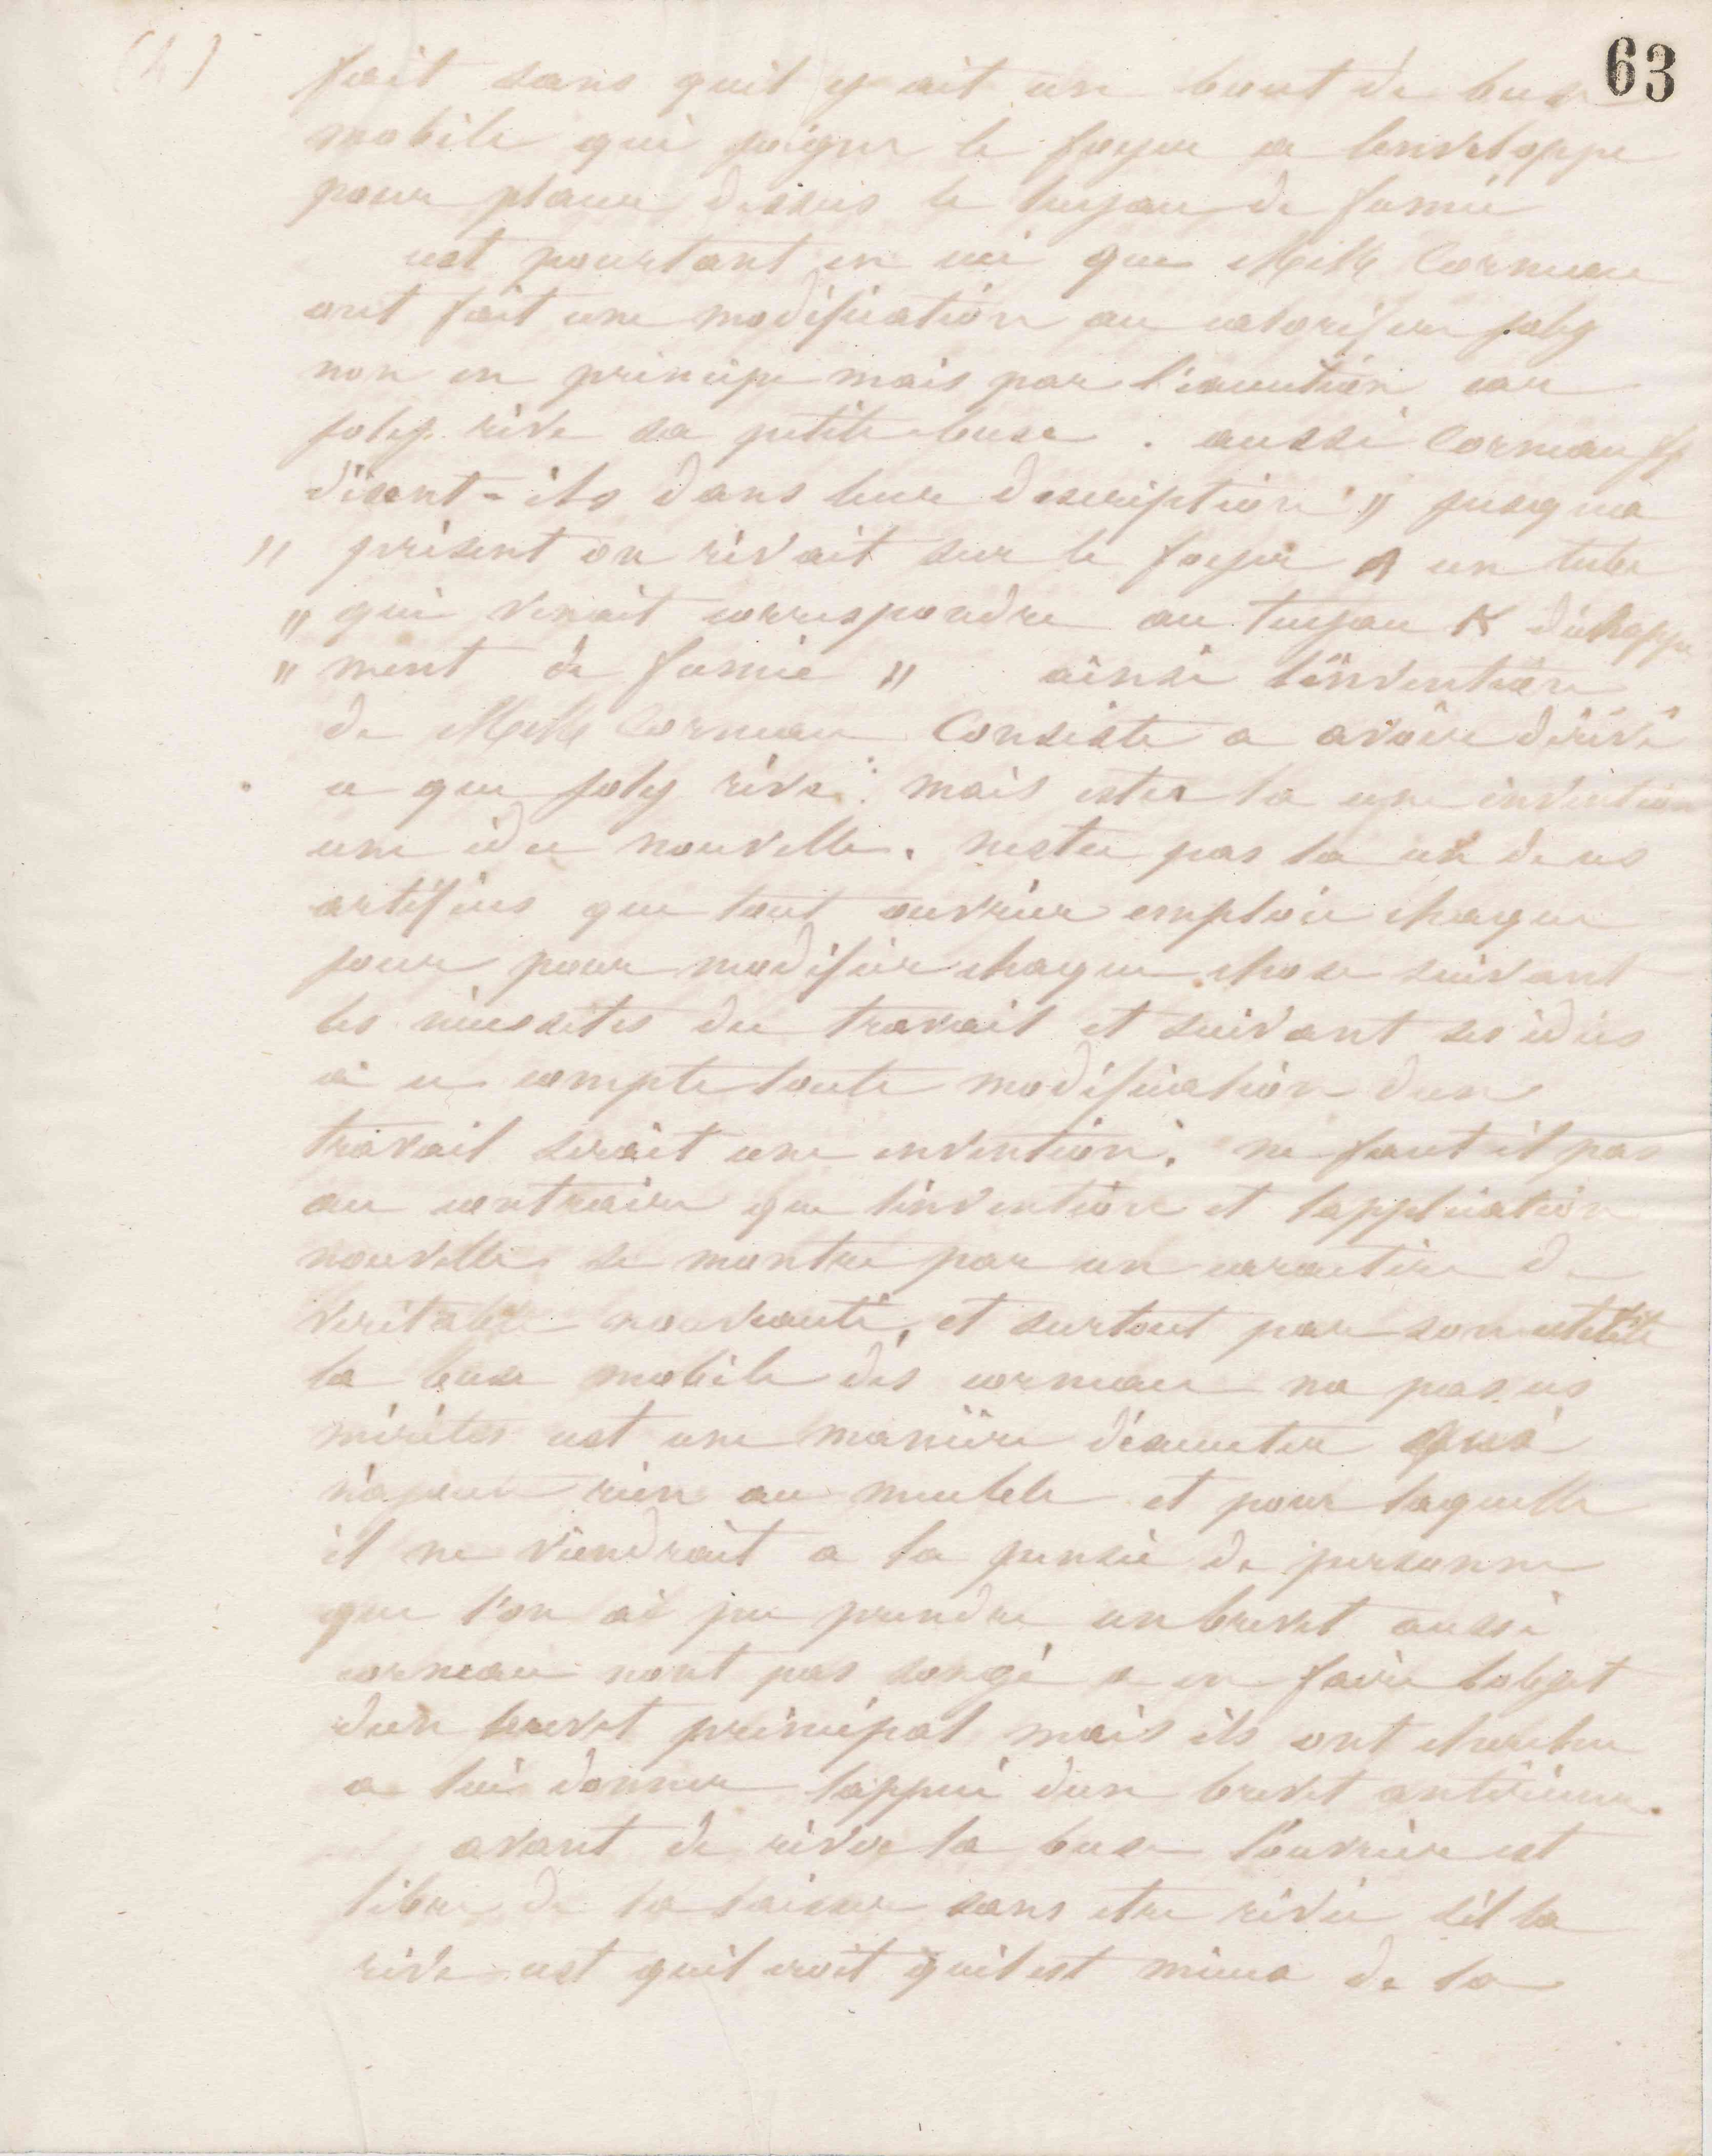 (4)
63
fait sans quil y ait un bout de buse
mobile qui joigne le foyer a lenveloppe
pour placer dessus le tuyau de fumée
cest pourtant en ceci que MM Corneau
ont fait une modification au calorifère joly
non en principe mais par l'execution car
joly rive sa petite buse . aussi Corneau ff
disent-ils dans leur description " jusqua
" présent on rivait sur le foyer A un tube
" qui venait correspondre au tuyau K déchappe
" ment de fumée " ainsi linvention
de MM Corneau Consiste a avoir dérivé
ce que joly rive. mais estce la une invention
une idée nouvelle. nestce pas la un de ces
artifices que tout ouvrier emploie chaque
jour pour modifier chaque chose suivant
les necessites du travail et suivant ses idées
à ce compte toute modification dun
travail serait une invention. ne faut il pas
au contraire que linvention et lapplication
nouvelle se montre par un caractère de
veritable nouveauté, et surtout par son utilité
la buse mobile des corneau na pas ces
mérites cest une manière déxecuter qui
najoute rien au meuble et pour laquelle
il ne viendrait a la pensée de personne
que l'on ai pu prendre un brevet aussi
corneau nont pas songé a en faire lobjet
dun brevet principal mais ils ont cherche
a lui donner lappui dun brevet antérieur.
avant de river la buse louvrier est
libre de la laisser sans etre rivée sil la
rive cest quil croit quil est mieux de la